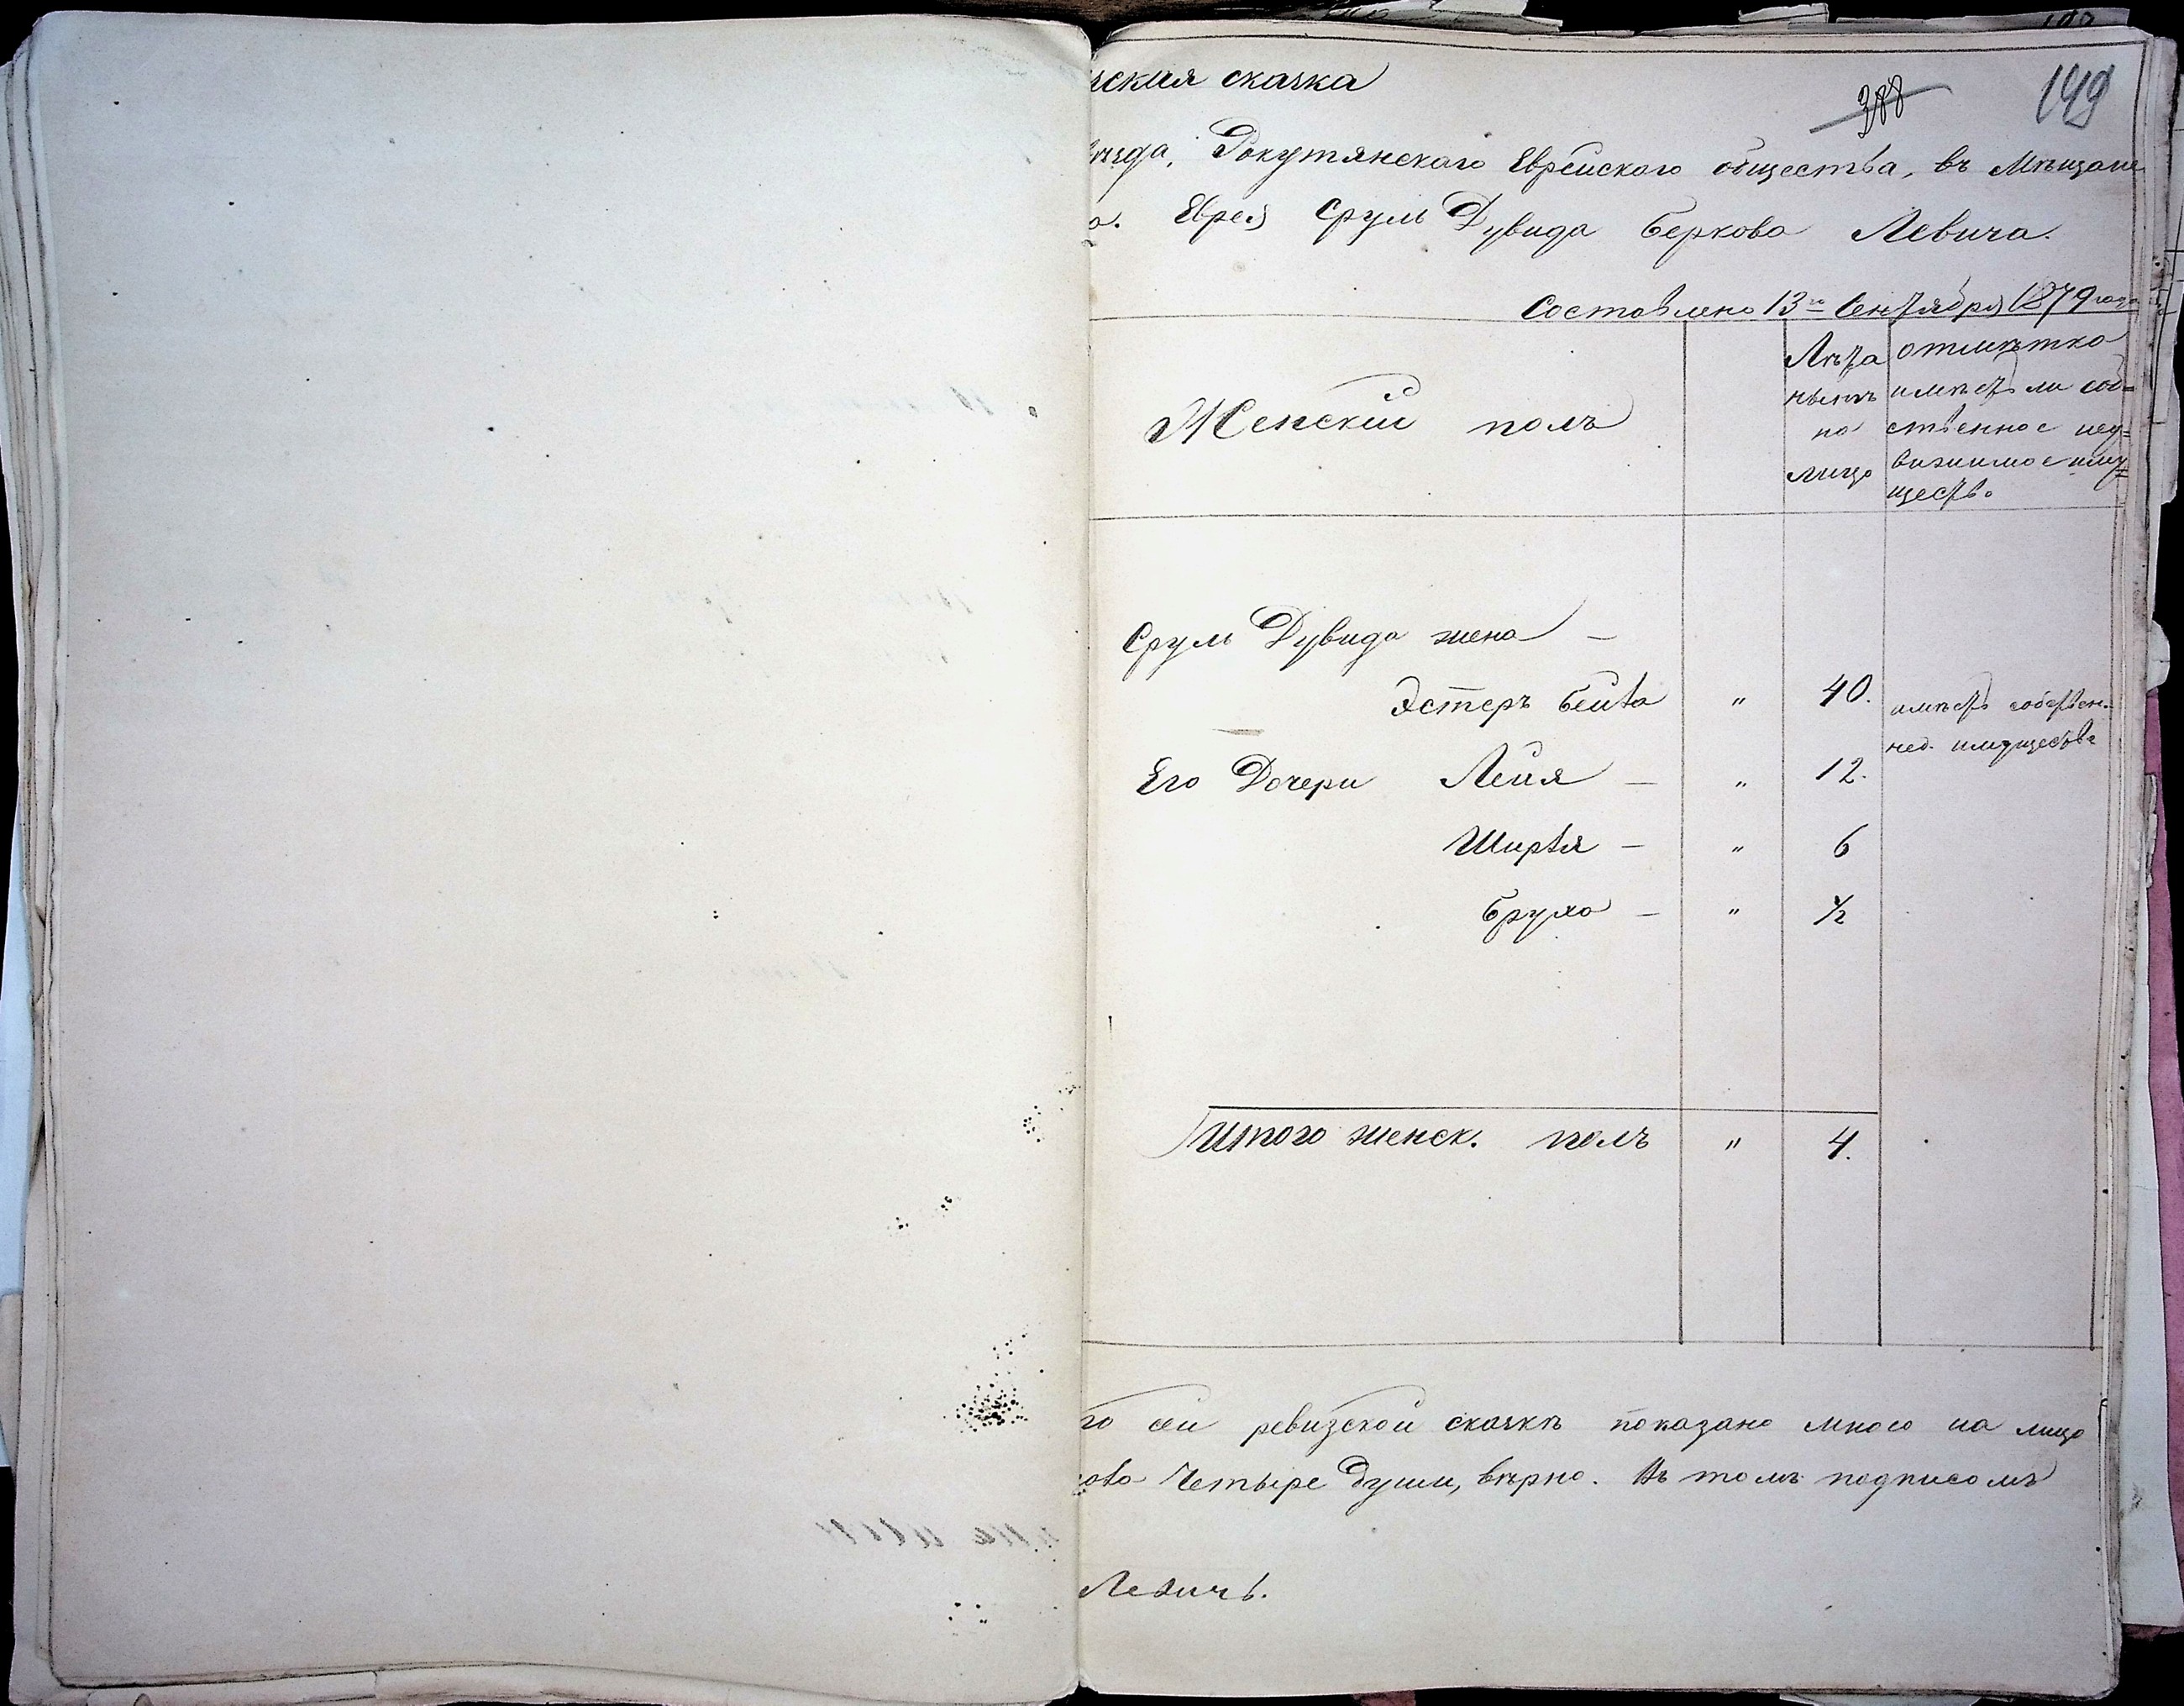 ская сказка
388
149
уѣзда, Рокутянскаго Еврейскаго общества, въ Мѣщане
Еврея Сруль Дувида Беркова Левича.
Составлено 13го Сентября 1879 года
Женскій полъ
Лѣта
нынѣ
на
лицо
отмѣтка
имѣетъ ли соб=
ственное нед=
вижимое иму=
щество
Сруль Дувида жена —
Эстеръ Бейла " 40. имѣетъ собствен.
нед. имущество
Его Дочери Лейя — " 12.
— " 6
Бруха — " ½
Итого женск. полъ " 4.
го сей ревизской сказкѣ показано мною на лицо
Четыре души, вѣрно. Въ томъ подписомъ
Левичъ.